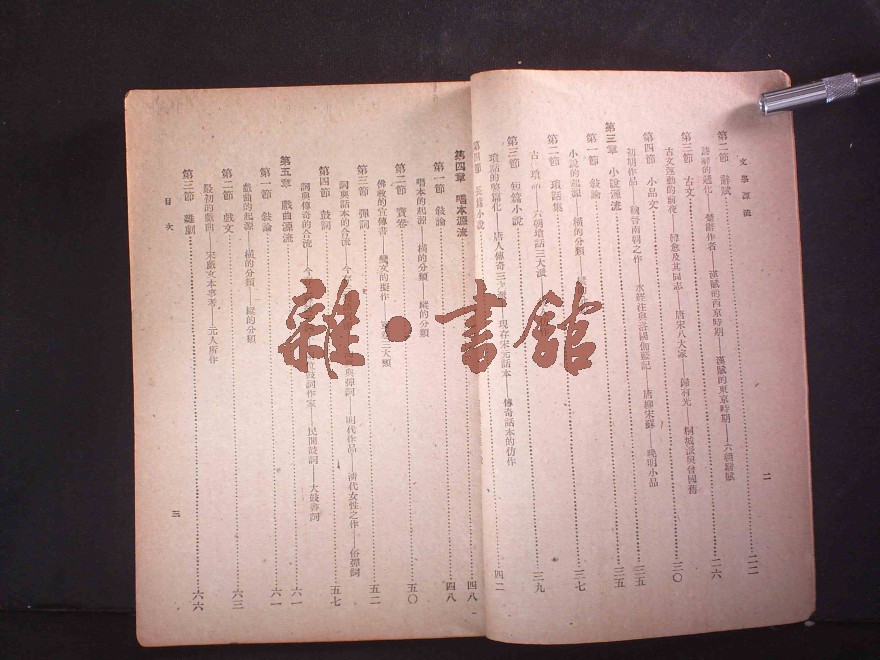 文學源流
二
第二節 辭賦 二二
詩辭的遞化——楚辭作者——漢賦的西京時期——漢賦的東京時期——六朝辭賦
第三節 古文 二六
古文運動的前夜——韓愈及其同志——唐宋八大家——歸有光——桐城派與曾國藩
第四節 小品文 三〇
初期作品——魏晉南朝之作——水經注與洛陽伽藍記——唐柳宋蘇——晚明小品
第三章 小說源流 三五
第一節 敍論 三五
小說的起源——橫的分類
第二節 瑣話集 三七
古 瑣話——六朝瑣話三大派
第三節 短篇小說 三九
瑣話的整篇化——唐人傳奇三大派——現存宋元話本——傳奇話本的仿作
第四節 長篇小說 四二
第四章 唱本源流 四八
第一節 敍論 四八
唱本的起源——橫的分類——縱的分類
第二節 寶卷 五〇
佛教的宣傳書——變文的擬作 三大類
第三節 彈詞 五二
詞與話本的合流——今 與彈詞——明代作品——清代女性之作——俗彈詞
第四節 鼓詞 五七
詞與傳奇的合流——今 鼓詞作家——民間鼓詞——大鼓書詞
第五章 戲曲源流 六一
第一節 敍論 六一
戲曲的起源——橫的分類——縱的分類
第二節 戲文 六三
最初的戲曲——宋戲文本事考——元人所作
第三節 雜劇 六六
目次
三
雜·書舘